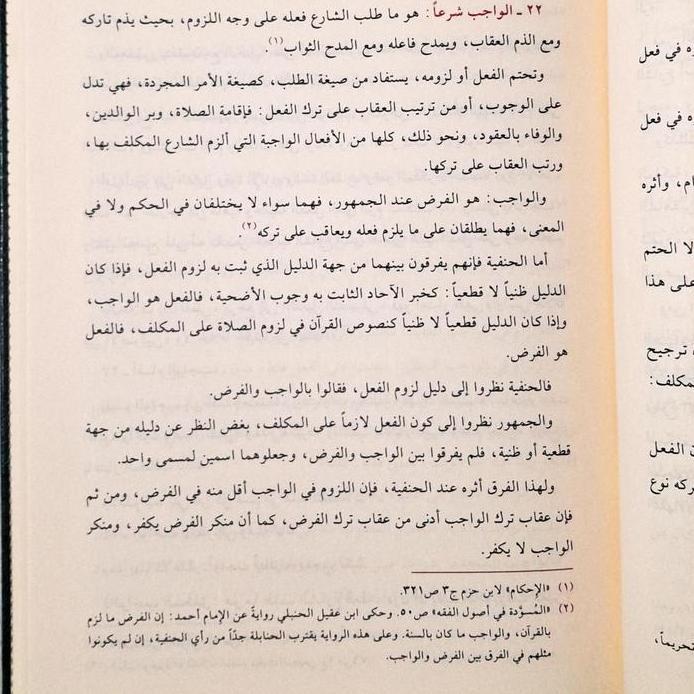 ٢٢ ـ الواجب شرعاً: هو ما طلب الشارع فعله على وجه اللزوم، بحيث يذم تاركه
ومع الذم العقاب، ويمدح فاعله ومع المدح الثواب(١).
وتحتم الفعل أو لزومه، يستفاد من صيغة الطلب، كصيغة الأمر المجردة، فهي تدل
على الوجوب، أو من ترتيب العقاب على ترك الفعل: فإقامة الصلاة، وبر الوالدين،
والوفاء بالعقود، ونحو ذلك، كلها من الأفعال الواجبة التي ألزم الشارع المكلف بها،
ورتب العقاب على تركها.
والواجب: هو الفرض عند الجمهور، فهما سواء لا يختلفان في الحكم ولا في
المعنى، فهما يطلقان على ما يلزم فعله ويعاقب على تركه(٢).
أما الحنفية فإنهم يفرقون بينهما من جهة الدليل الذي ثبت به لزوم الفعل، فإذا كان
الدليل ظنياً لا قطعياً: كخبر الآحاد الثابت به وجوب الأضحية، فالفعل هو الواجب،
وإذا كان الدليل قطعياً لا ظنياً كنصوص القرآن في لزوم الصلاة على المكلف، فالفعل
هو الفرض.
فالحنفية نظروا إلى دليل لزوم الفعل، فقالوا بالواجب والفرض.
والجمهور نظروا إلى كون الفعل لازماً على المكلف، بغض النظر عن دليله من جهة
قطعية أو ظنية، فلم يفرقوا بين الواجب والفرض، وجعلوهما اسمين لمسمى واحد.
ولهذا الفرق أثره عند الحنفية، فإن اللزوم في الواجب أقل منه في الفرض، ومن ثم
فإن عقاب ترك الواجب أدنى من عقاب ترك الفرض، كما أن منكر الفرض يكفر، ومنكر
الواجب لا يكفر.
(١) «الإحكام» لابن حزم ج٣ ص٣٢١.
(٢) «المُسوَّدة في أصول الفقه» ص٥٠. وحكى ابن عقيل الحنبلي روايةً عن الإمام أحمد: إن الفرض ما لزم
بالقرآن، والواجب ما كان بالسنة. وعلى هذه الرواية يقترب الحنابلة جدًّا من رأي الحنفية، إن لم يكونوا
مثلهم في الفرق بين الفرض والواجب.
ه في فعل
ه في فعل
م، وأثره
لا الحتم
على هذا
ترجيح
مكلف:
ن الفعل
ركه نوع
تحريماً،